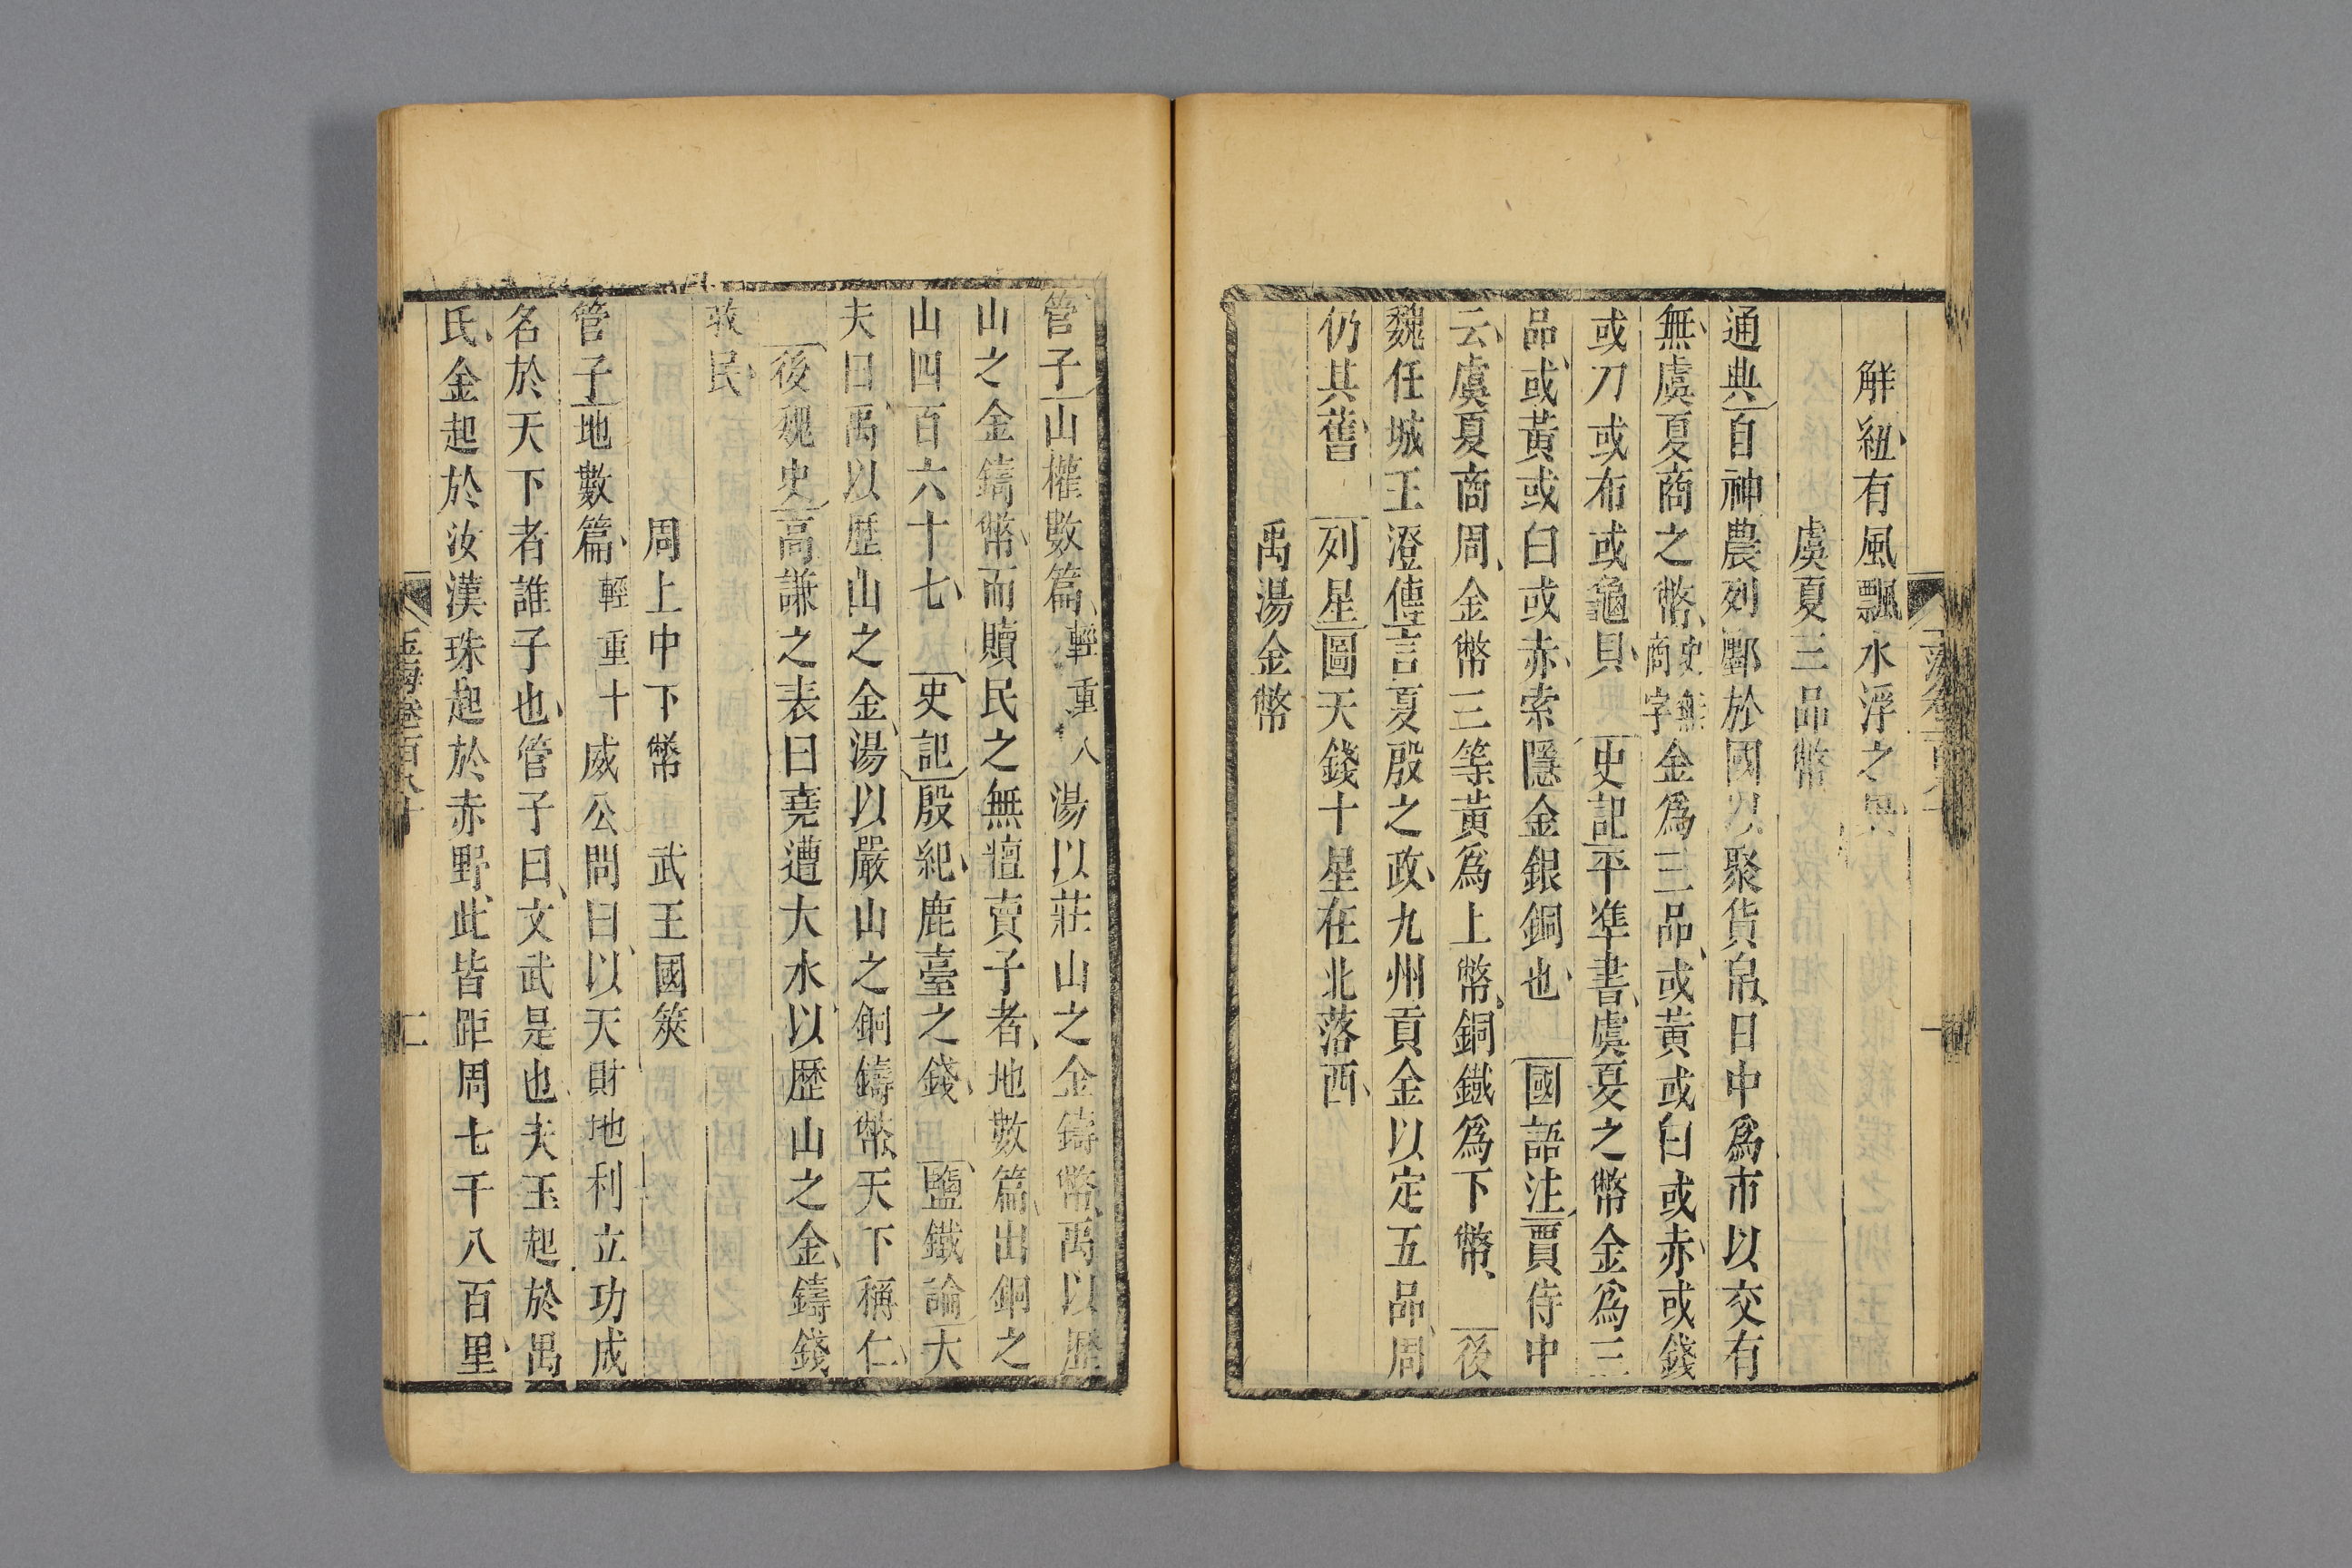 解紐有風飄水浮之異
虞夏三品幣
通典自神農列鄽於國以聚貨帛日中爲市以交有
無虞夏商之幣史無商字金爲三品或黃或白或赤或錢
或刀或布或龜貝 史記平準書虞夏之幣金爲三
品或黃或白或赤索隱金銀銅也 國語注賈侍中
云虞夏商周金幣三等黃爲上幣銅鐵爲下幣 後
魏任城王澄傳言夏殷之政九州貢金以定五品周
仍其舊 列星圖天錢十星在北落西
禹湯金幣
管子山權數篇輕重八湯以莊山之金鑄幣禹以歷
山之金鑄幣而贖民之無𥼷賣子者地數篇出銅之
山四百六十七 史記殷紀鹿臺之錢 鹽鐵論大
夫曰禹以歷山之金湯以嚴山之銅鑄幣天下稱仁
後魏史高謙之表曰堯遭大水以歷山之金鑄錢
救民
周上中下幣 武王國筴
管子地數篇輕重十威公問曰以天財地利立功成
名於天下者誰子也管子曰文武是也夫玉起於禺
氏金起於汝漢珠起於赤野此皆距周七千八百里
玉海卷百八十 二